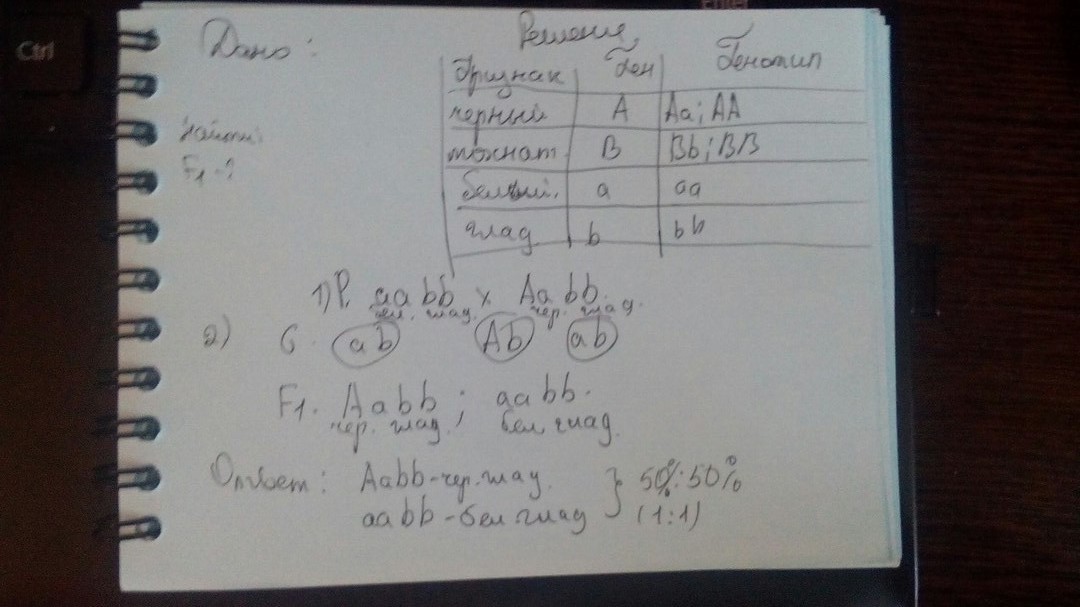 Ctrl
Enter
Дано: Решение
Признак Ген Генотип
черный A Aa; AA
мохнат. B Bb; BB
Найти:
F1 - ?
белый. a aa
глад b bb
1) P. aabb x Aabb.
бел. глад. чер. глад.
2) G. ab Ab ab
F1. Aabb; aabb.
чер. глад. бел глад.
Ответ: Aabb - чер. глад. } 50% : 50%
aabb - бел глад (1:1)